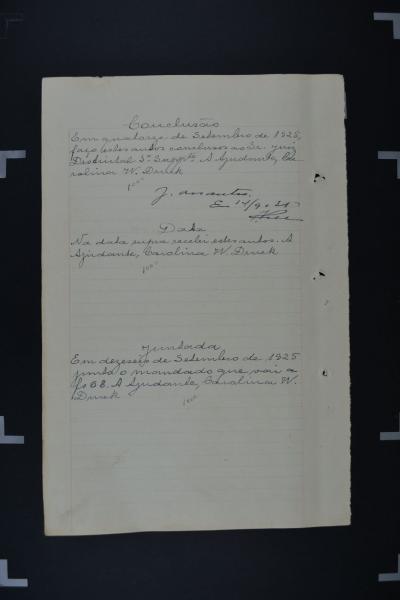 Conclusão
Em quatorze de Setembro de 1925,
faço estes autos conclusos ao Sr. Juiz
Districtal 3º Suppte. A Ajudante, Ca-
rolina W. Druck
J. aos autos.
E 14/9/925
Data
Na data supra recebi estes autos. A
Ajudante, Carolina W. Druck
Juntada
Em dezeseis de Setembro de 1925
junto o mandado que vai a
fs 68. A Ajudante, Carolina W.
Druck